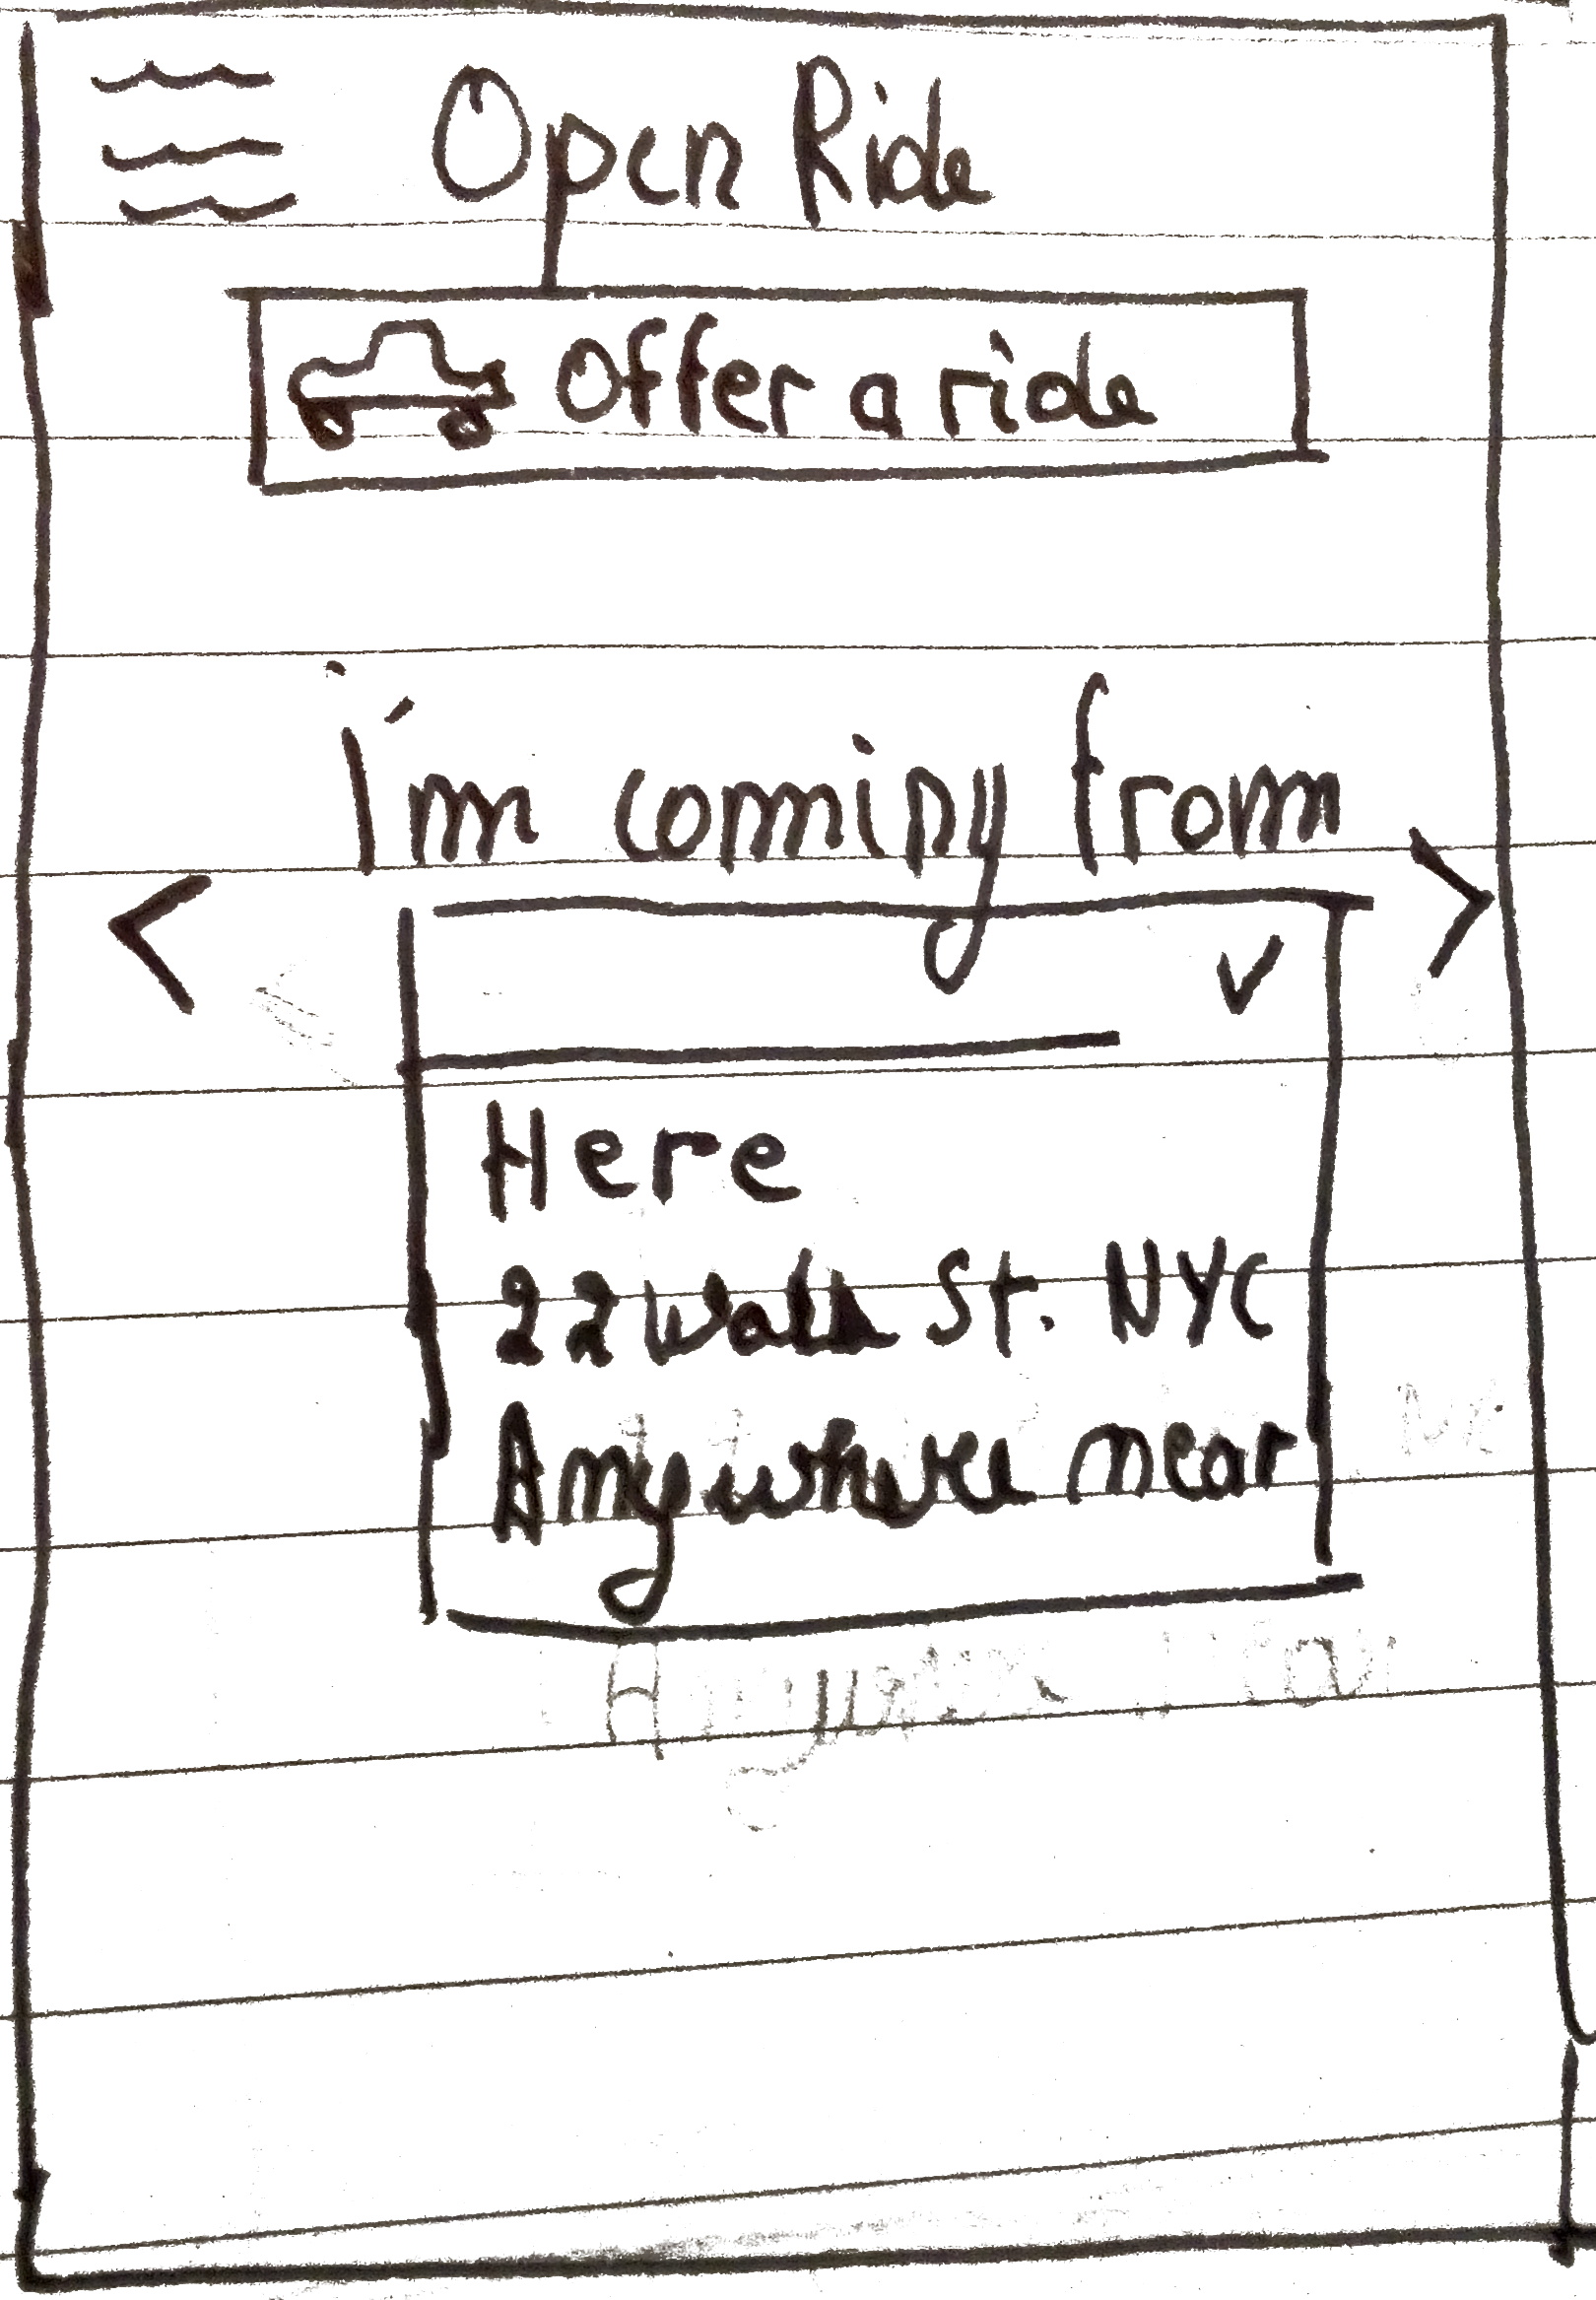 Open Ride
Offer a ride
I'm coming from
Here
22 Wall St. NYC
Anywhere near
Anywhere near